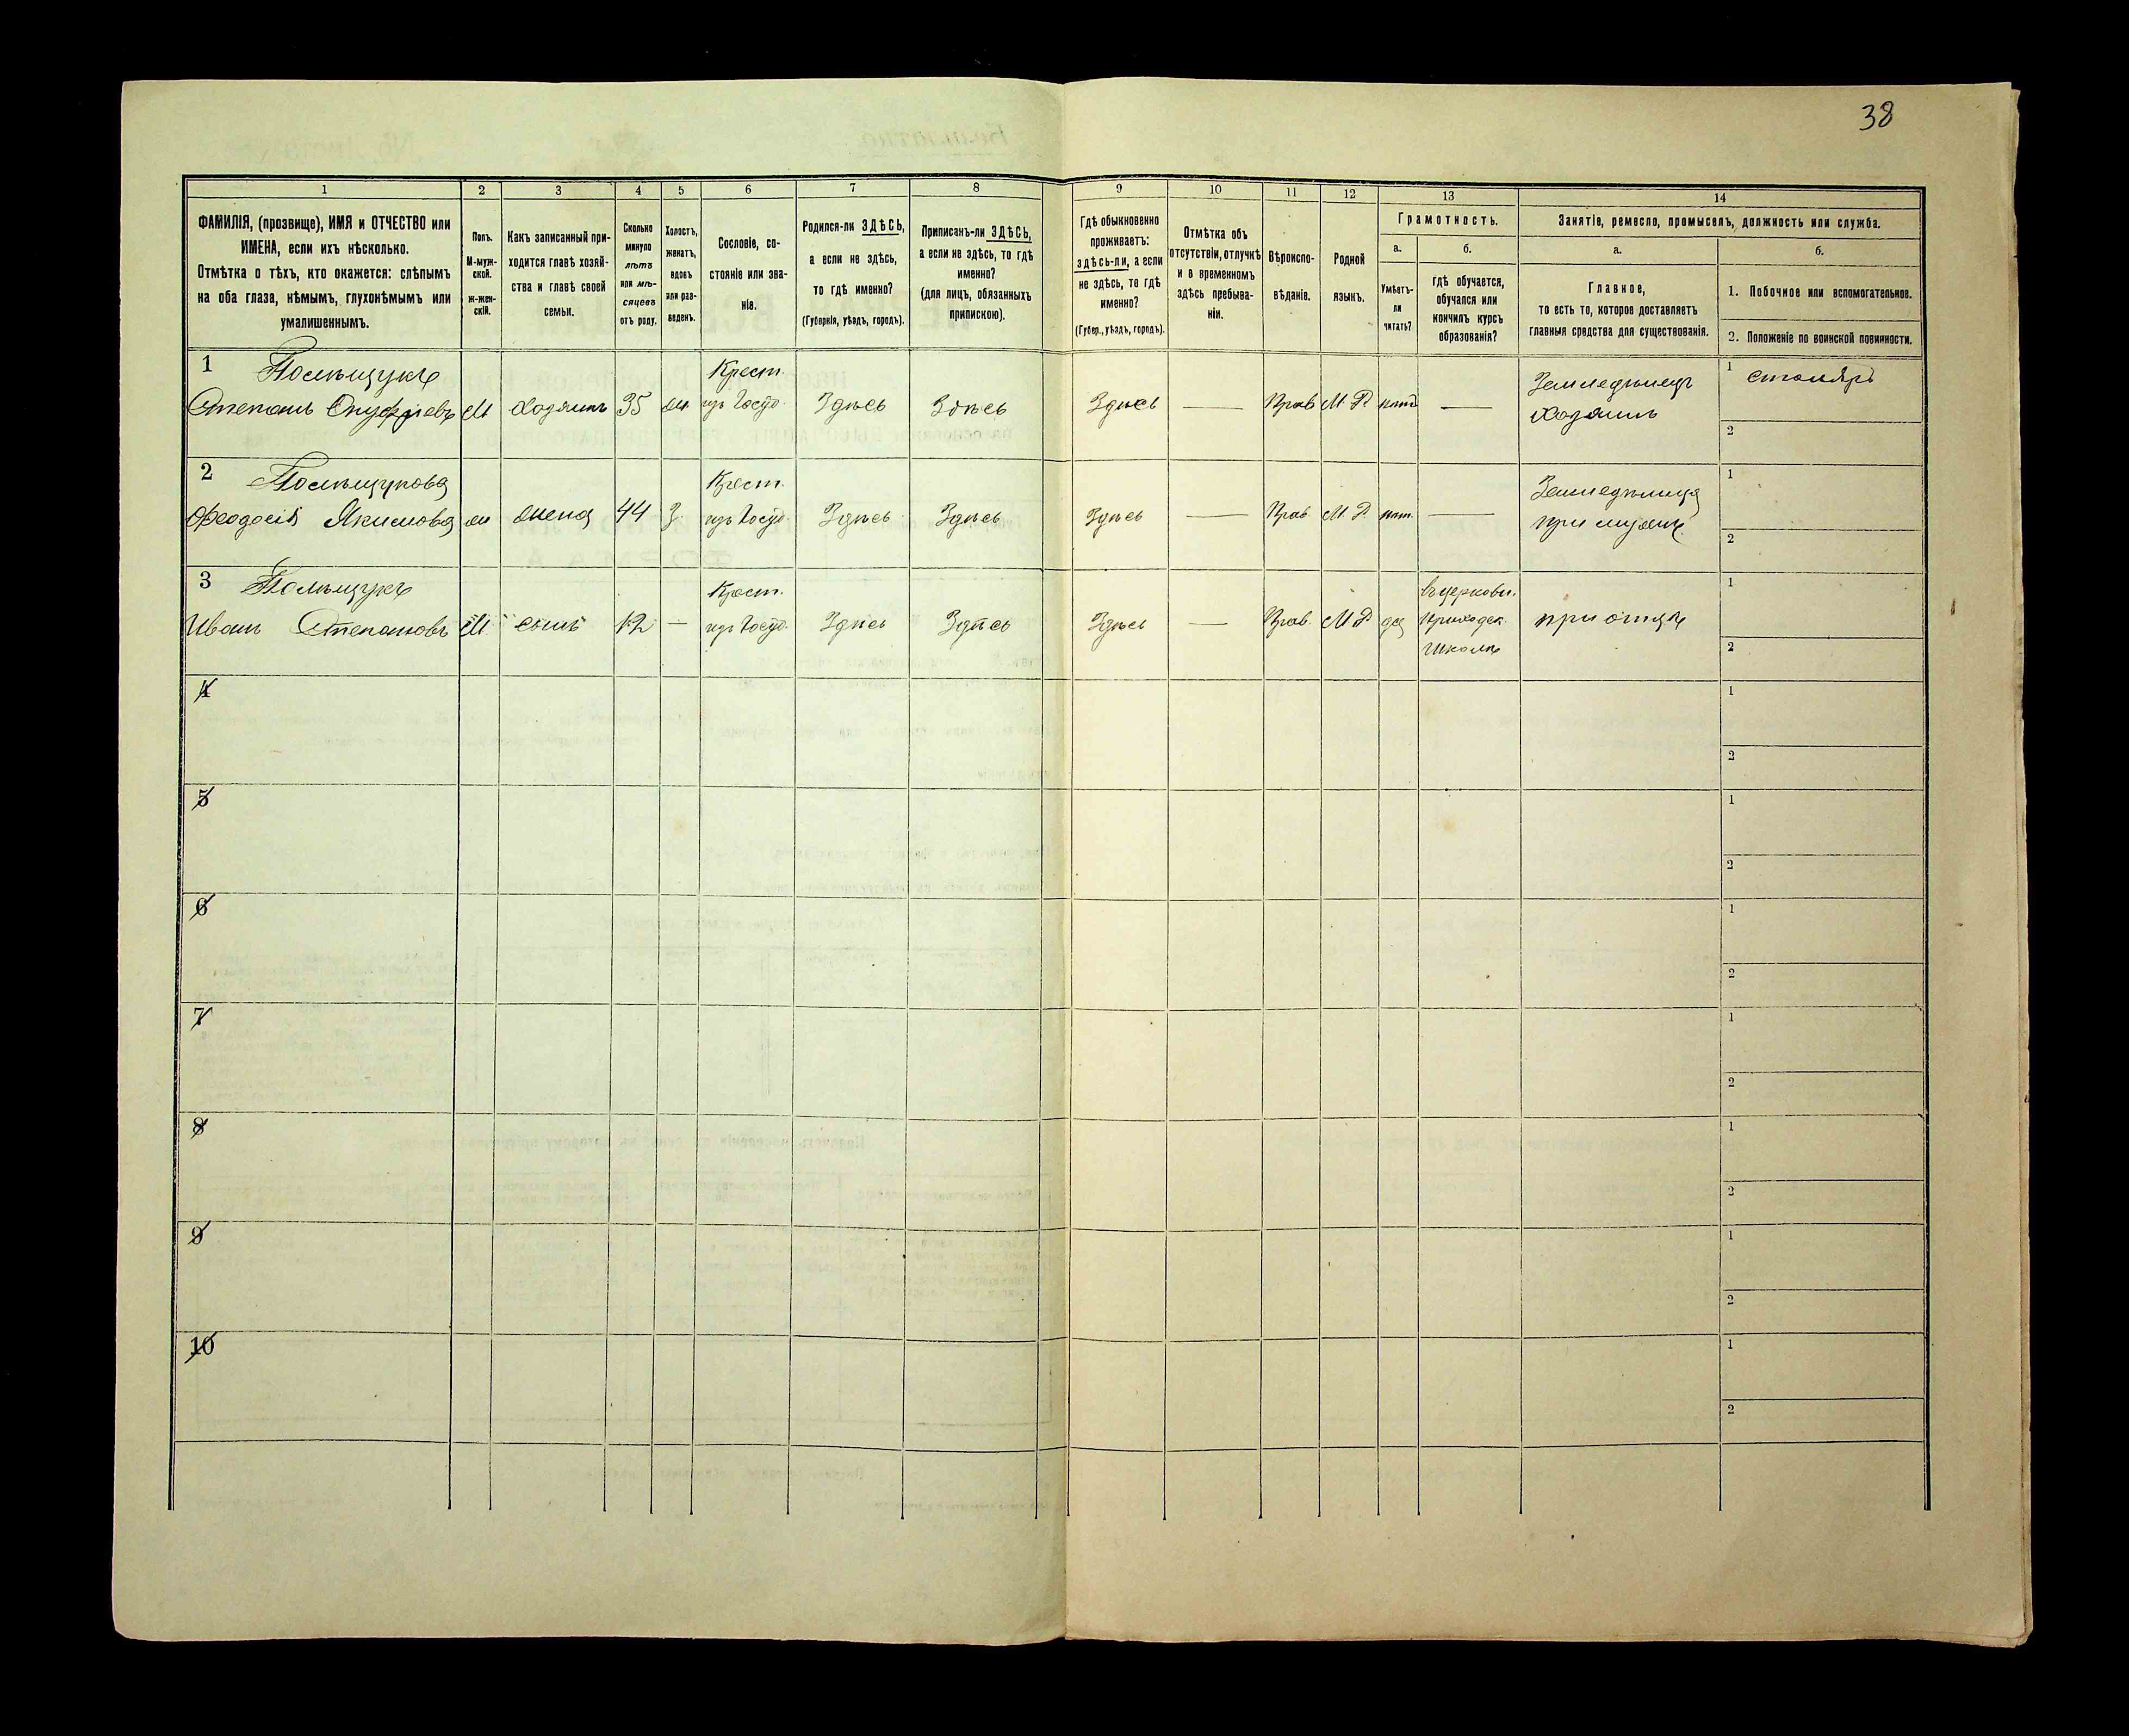 38
1 2 3 4 5 6 7 8 9 10 11 12 13 14
ФАМИЛІЯ, (прозвище), ИМЯ и ОТЧЕСТВО или
ИМЕНА, если ихъ нѣсколько.
Отмѣтка о тѣхъ, кто окажется: слѣпымъ
на оба глаза, нѣмымъ, глухонѣмымъ или
умалишеннымъ.
Полъ.
М-муж-
ской.
ж-жен-
скій.
Какъ записанный при-
ходится главѣ хозяй-
ства и главѣ своей
семьи.
Сколько
минуло
лѣтъ
или мѣ-
сяцевъ
отъ роду.
Холостъ,
женатъ,
вдовъ
или раз-
веденъ.
Сословіе, со-
стояніе или зва-
ніе.
Родился-ли ЗДѢСЬ,
а если не здѣсь,
то гдѣ именно?
(Губернія, уѣздъ, городъ).
Приписанъ-ли ЗДѢСЬ,
а если не здѣсь, то гдѣ
именно?
(для лицъ, обязанныхъ
припискою).
Гдѣ обыкновенно
проживаетъ:
здѣсь-ли, а если
не здѣсь, то гдѣ
именно?
(Губер., уѣздъ, городъ).
Отмѣтка объ
отсутствіи, отлучкѣ
и о временномъ
здѣсь пребыва-
ніи.
Вѣроиспо-
вѣданіе.
Родной
языкъ.
Грамотность.
а.
Умѣетъ-
ли
читать?
б.
гдѣ обучается,
обучался или
кончилъ курсъ
образованія?
Занятіе, ремесло, промыселъ, должность или служба.
а.
Главное,
то есть то, которое доставляетъ
главныя средства для существованія.
б.
1. Побочное или вспомогательное.
2. Положеніе по воинской повинности.
1 Полѣщукъ Крест. Земледѣлецъ 1 столяръ
Степанъ Онуфріевъ М хозяинъ 35 ж. изъ Госуд. Здѣсь Здѣсь Здѣсь — Прав М Р нѣтъ — хозяинъ
2
2 Полѣщукова Крест. Земледѣлица 1
Феодосія Якимова ж жена 44 З. изъ Госуд. Здѣсь Здѣсь Здѣсь — Прав М Р нѣт. — при мужѣ
2
3 Полѣщукъ Крест. въ церковн. 1
Иванъ Степановъ М. сынъ 12 — изъ Госуд. Здѣсь Здѣсь Здѣсь — Прав. М Р да приходск. при отцѣ
школѣ 2
4 1
2
5 1
2
6 1
2
7 1
2
8 1
2
9 1
2
10 1
2